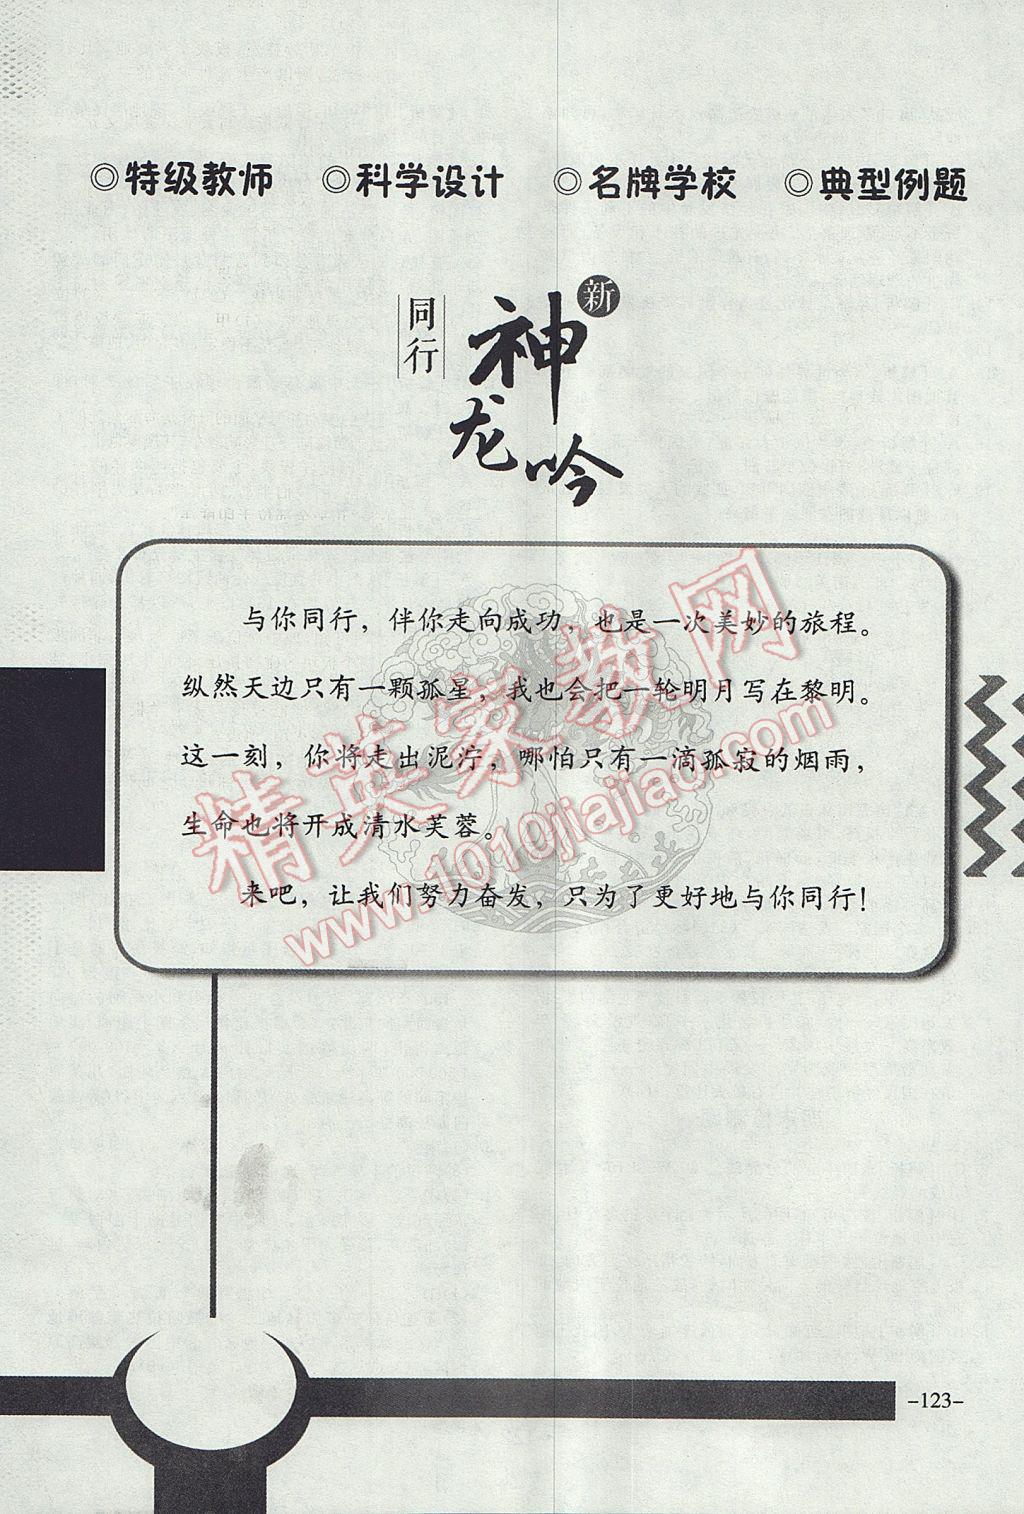 ◎特级教师 ◎科学设计 ◎名牌学校 ◎典型例题
同行
新
神龙吟
与你同行，伴你走向成功，也是一次美妙的旅程。
纵然天边只有一颗孤星，我也会把一轮明月写在黎明。
这一刻，你将走出泥泞，哪怕只有一滴孤寂的烟雨，
生命也将开成清水芙蓉。
来吧，让我们努力奋发，只为了更好地与你同行！
精英家教网
www.1010jiajiao.com
-123-